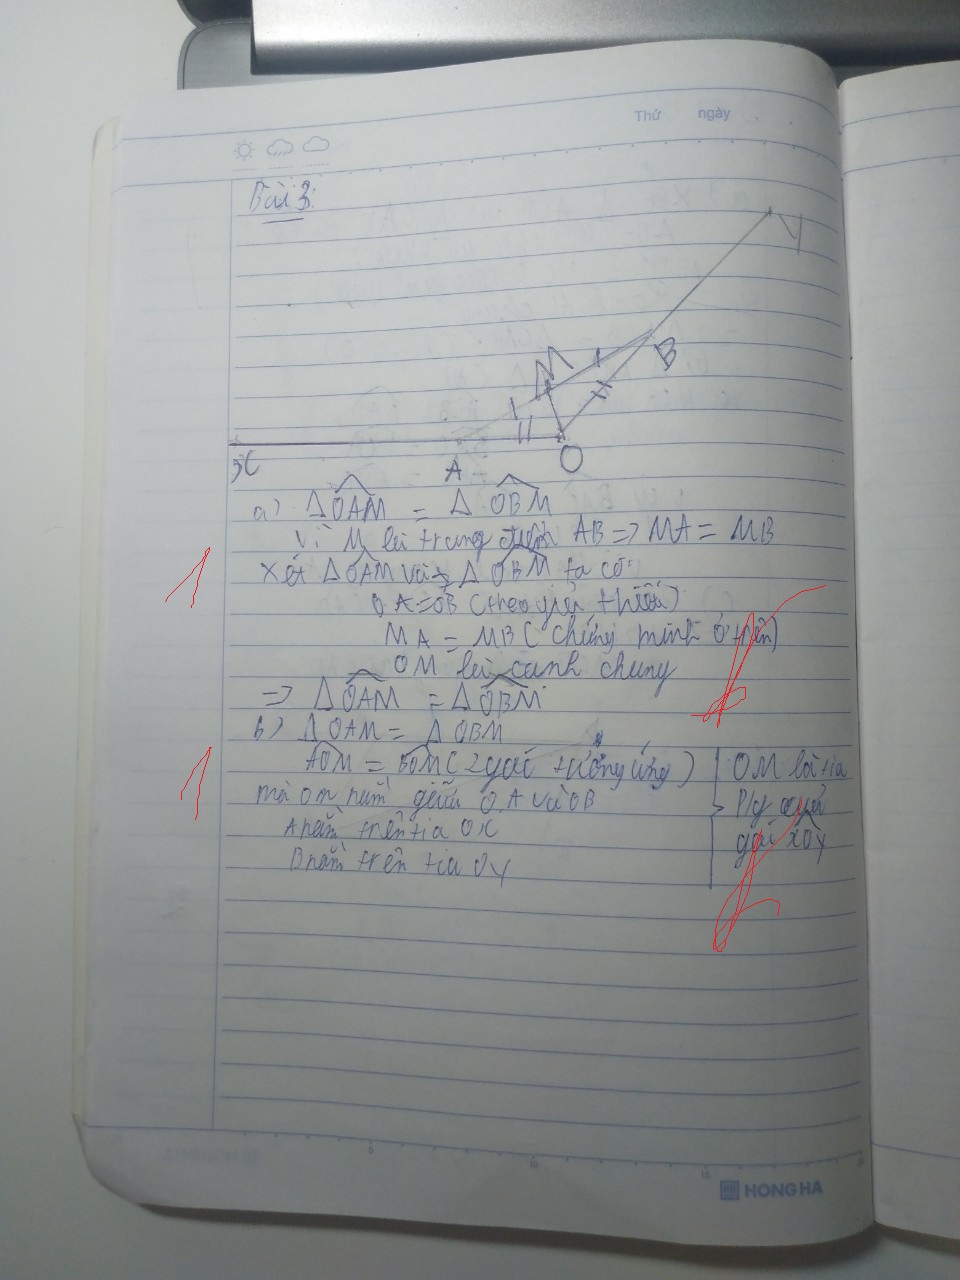 Thứ ngày
Bài 3:
y
M
B
x
A
O
a) Δ OAM = Δ OBM
Vì M là trung điểm AB => MA = MB
1
Xét Δ OAM và Δ OBM ta có:
OA = OB (theo giả thiết)
MA = MB (chứng minh ở trên)
OM là cạnh chung
=> Δ OAM = Δ OBM
b) Δ OAM = Δ OBM
1
AOM = BOM (2 góc tương ứng)
mà OM nằm giữa OA và OB
A nằm trên tia OX
B nằm trên tia OY
OM là tia
P/g của
góc xOy
5
10
15
HONG HA